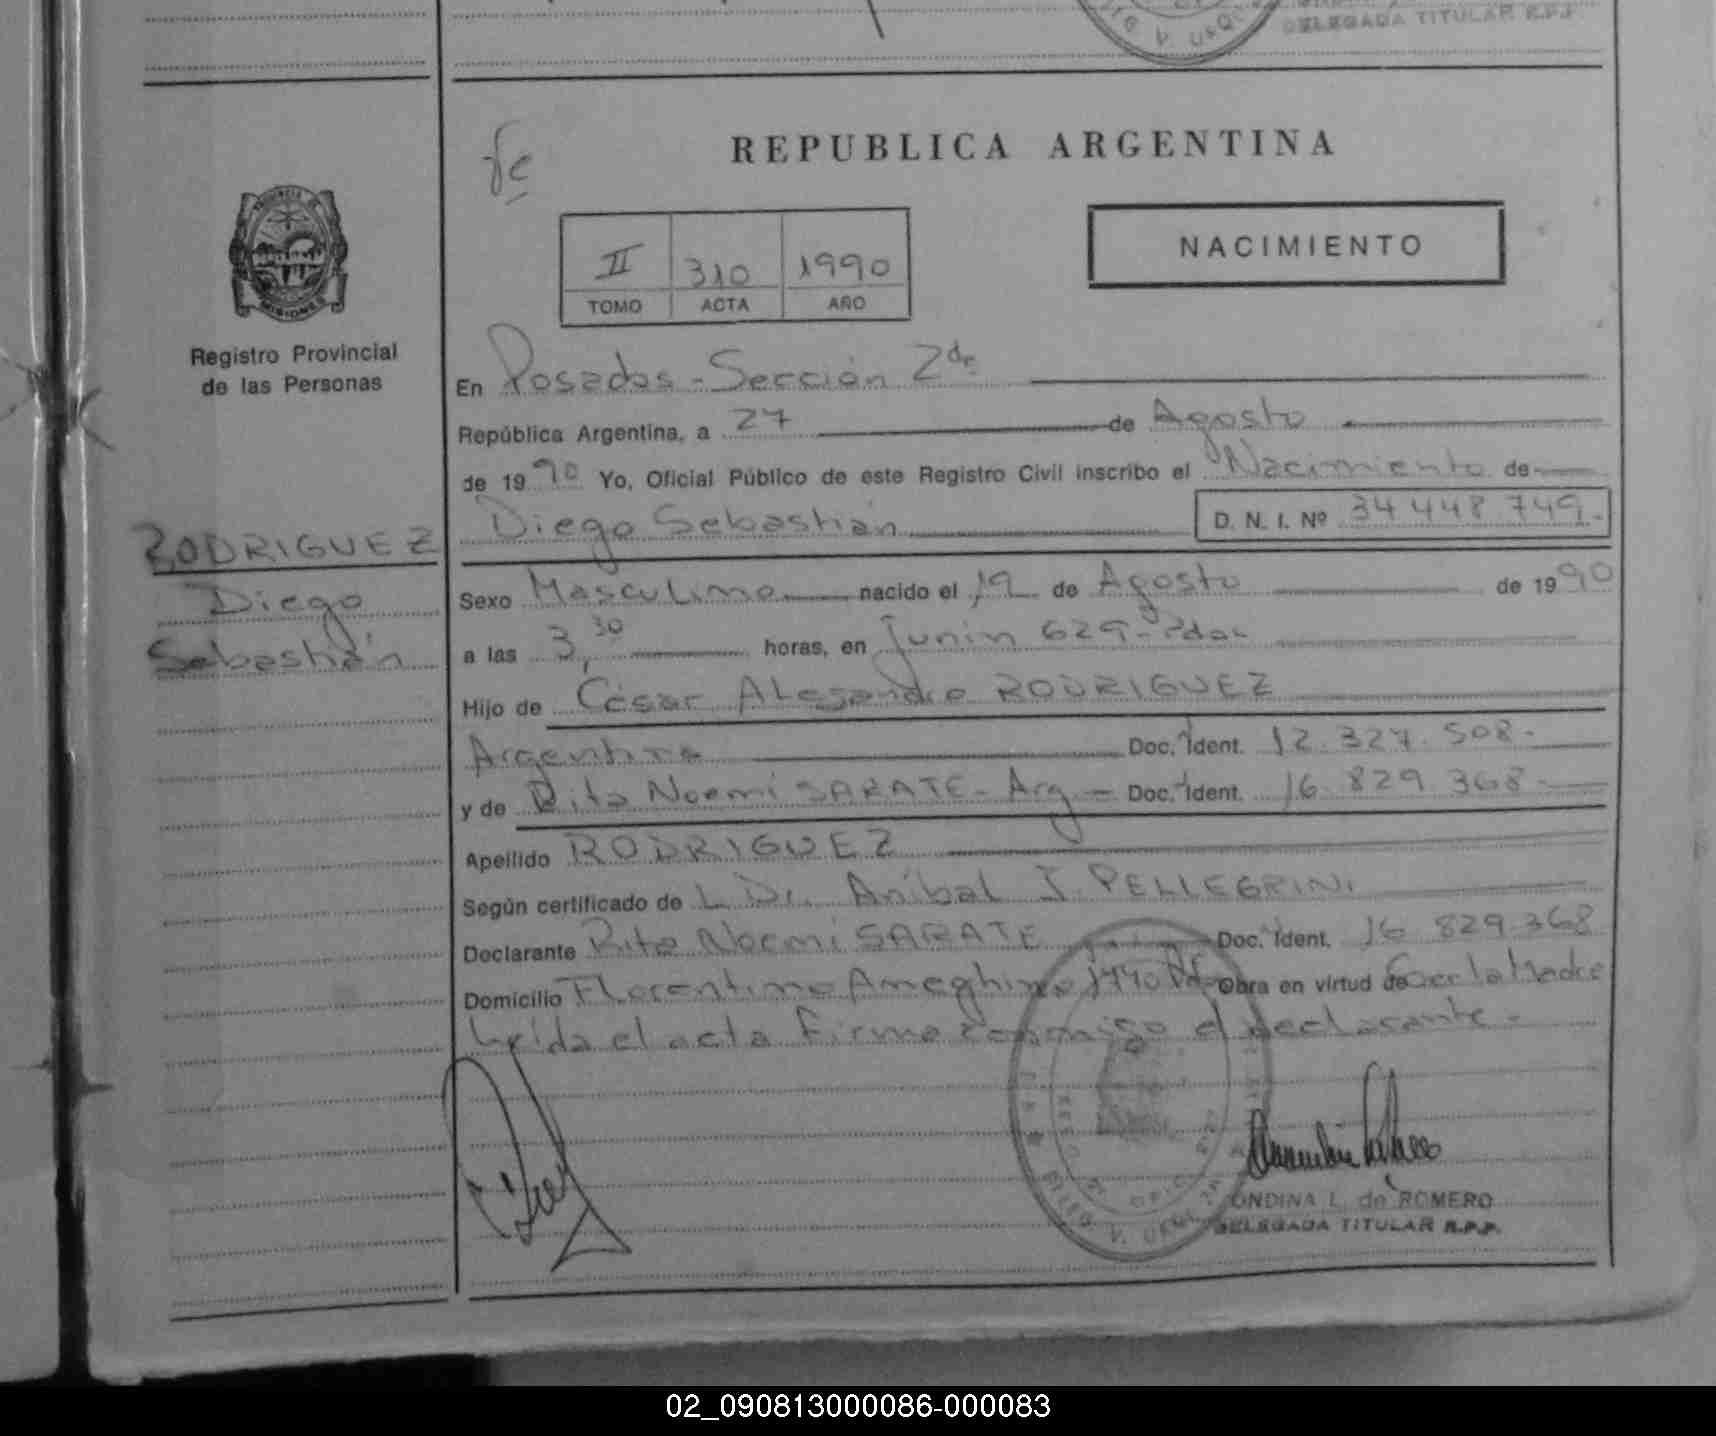 DELEGADA TITULAR R.P.P.
REPUBLICA ARGENTINA
NACIMIENTO
II 310 1990
TOMO ACTA AÑO
PROVINCIA DE
MISIONES
Registro Provincial
de las Personas
RODRIGUEZ
Diego
Sebastián
En Posadas - Sección 2da
República Argentina, a 27 de Agosto
de 1990 Yo, Oficial Público de este Registro Civil inscribo el Nacimiento de
Diego Sebastián D. N. I. Nº 34 448 749.-
Sexo Masculino nacido el 12 de Agosto de 1990
a las 3,30 horas, en Junin 629 - Pdas
Hijo de César Alejandro RODRIGUEZ
Argentina Doc. Ident. 12.327.508.-
y de Rita Noemí SARATE - Arg - Doc. Ident. 16.829.368.-
Apellido RODRIGUEZ
Según certificado de L Dr. Aníbal J. PELLEGRINI
Declarante Rita Noemí SARATE Doc. Ident. 16 829.368
Domicilio Florentino Ameghino 1440 Obra en virtud de Ser la Madre
Leída el acta firma conmigo el declarante.-
ONDINA L. de ROMERO
DELEGADA TITULAR R.P.P.
02_090813000086-000083